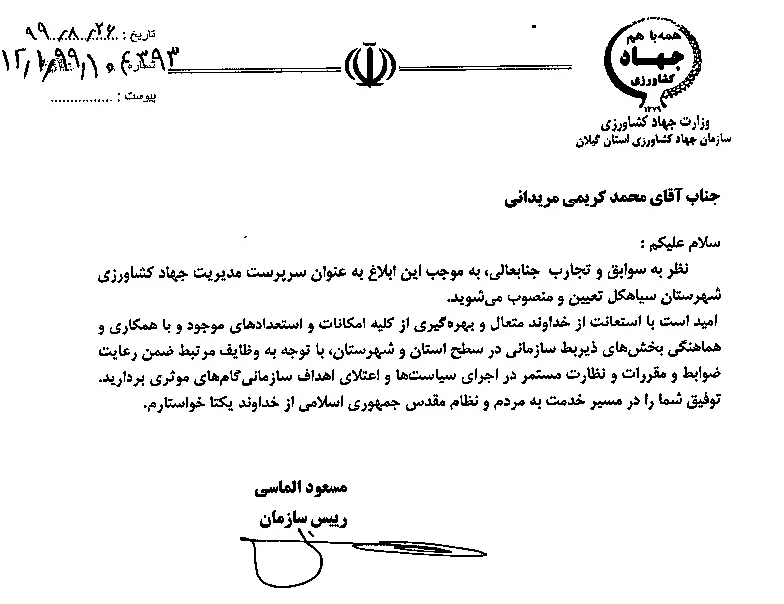 همه با هم
جهاد
کشاورزی
۱۳۷۹
وزارت جهاد کشاورزی
سازمان جهاد کشاورزی استان گیلان
تاریخ : ۹۹/۸/۲۶
شماره
پیوست : ................
جناب آقای محمد کریمی مریدانی
سلام علیکم :
نظر به سوابق و تجارب جنابعالی، به موجب این ابلاغ به عنوان سرپرست مدیریت جهاد کشاورزی
شهرستان سیاهکل تعیین و منصوب می‌شوید.
امید است با استعانت از خداوند متعال و بهره‌گیری از کلیه امکانات و استعدادهای موجود و با همکاری و
هماهنگی بخش‌های ذیربط سازمانی در سطح استان و شهرستان، با توجه به وظایف مرتبط ضمن رعایت
ضوابط و مقررات و نظارت مستمر در اجرای سیاست‌ها و اعتلای اهداف سازمانی گام‌های موثری بردارید.
توفیق شما را در مسیر خدمت به مردم و نظام مقدس جمهوری اسلامی از خداوند یکتا خواستارم.
مسعود الماسی
رییس سازمان